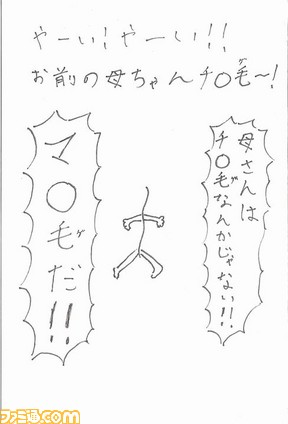 やーい!やーい!!
お前の母ちゃんチ○毛〜!
母さんは
チ○毛なんかじゃない!!
マ○毛だ!!
ファミ通.com